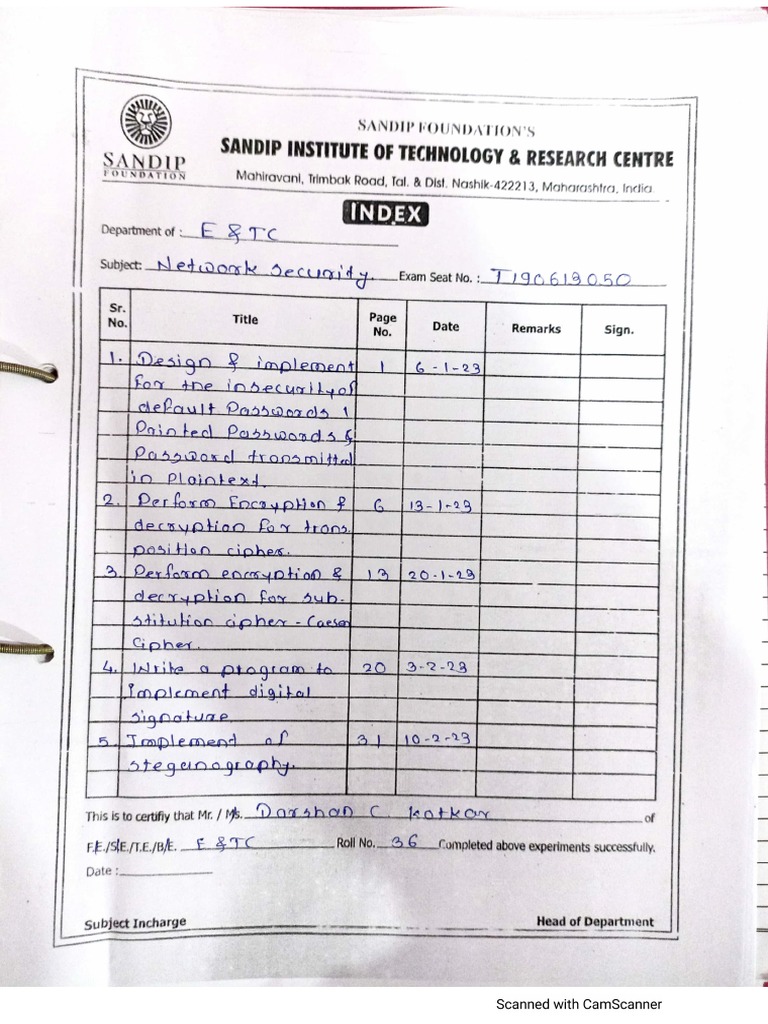 SANDIP
FOUNDATION
SANDIP FOUNDATION'S
SANDIP INSTITUTE OF TECHNOLOGY & RESEARCH CENTRE
Mahiravani, Trimbak Road, Tal. & Dist. Nashik-422213, Maharashtra, India.
INDEX
Department of : E & TC
Subject: Network security. Exam Seat No. : T190613050
Sr. No. Title Page No. Date Remarks Sign.
1. Design & implement 1 6-1-23
for the insecurity of
default Passwords,
Printed Passwords &
Password transmitted
in Plaintext.
2. Perform Encryption & 6 13-1-23
decryption for trans.
position cipher.
3. Perform encryption & 13 20-1-23
decryption for sub.
stitution cipher - Caeser
Cipher.
4. Write a program to 20 3-2-23
Implement digital
signature
5. Implement of 31 10-2-23
steganography.
This is to certifiy that Mr. / M/s. Darshan C. Kotkar of
F.E./S.E./T.E./B.E. E & TC Roll No. 36 Completed above experiments successfully.
Date :
Subject Incharge Head of Department
Scanned with CamScanner